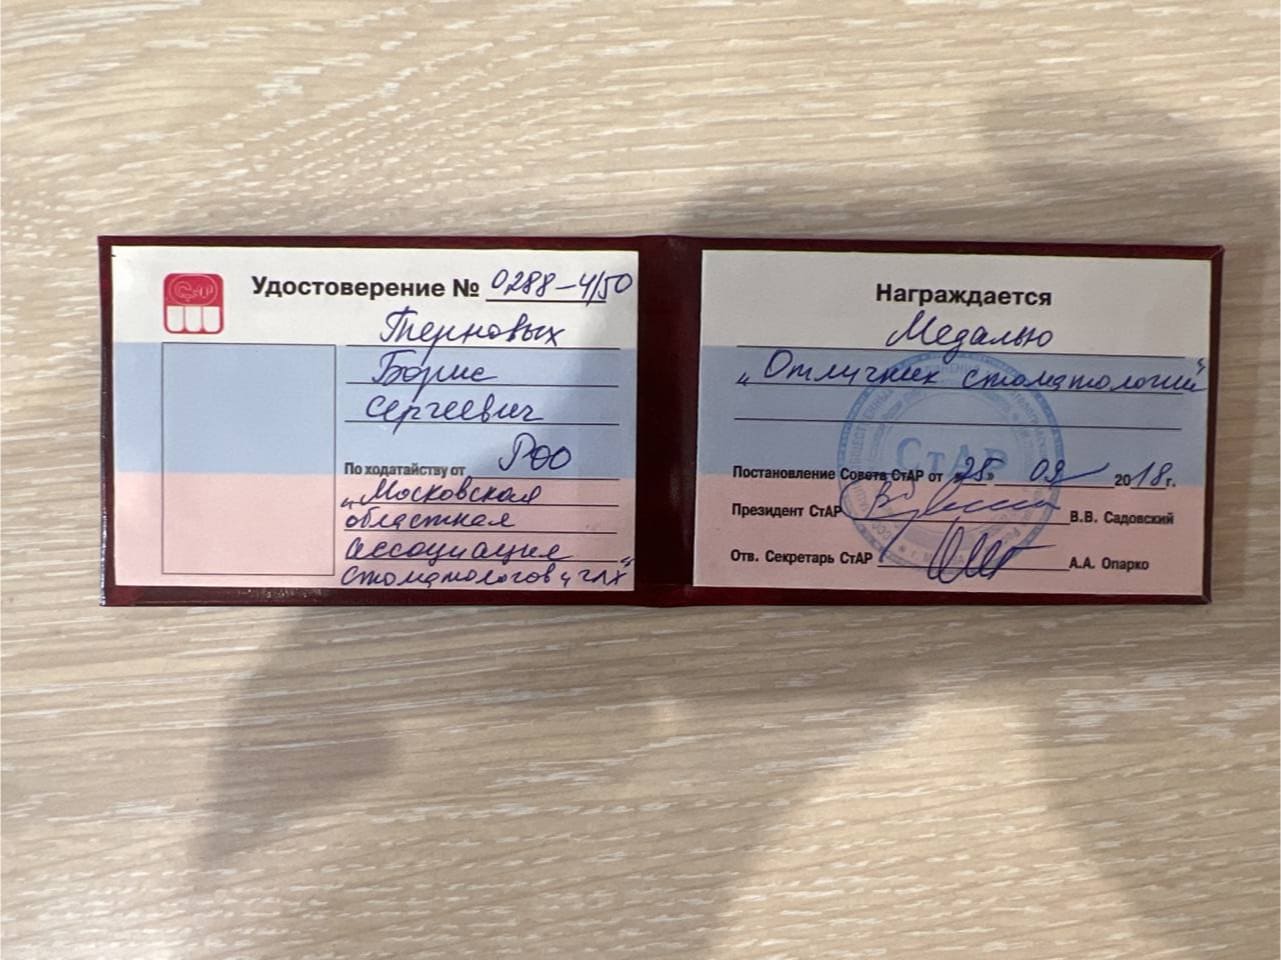 СтАР
Удостоверение № 0288-4/50
Терновых
Борис
Сергеевич
По ходатайству от РОО
„Московская
областная
ассоциация
стоматологов и ЧЛХ“
Награждается
Медалью
„Отличник стоматологии“
СтАР
Постановление Совета СтАР от „28“ 09 2018г.
Президент СтАР В.В. Садовский
Отв. Секретарь СтАР А.А. Опарко